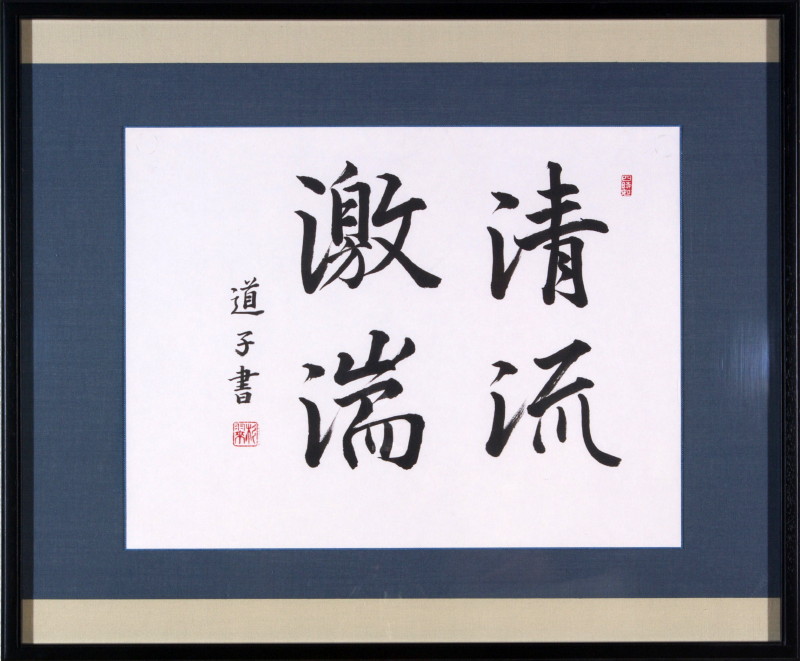 清流
激湍
道子書